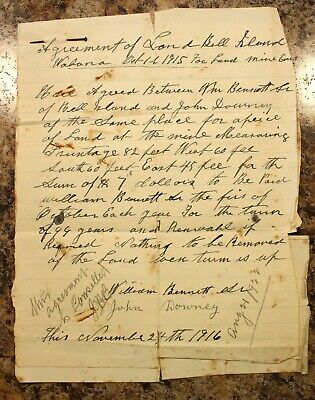 Agreement of Land Bell Island
Wabana Oct 14 1915 For Land mine
Have Agreed Between Wm Bennett Sr
of Bell Island and John Downey
of the Same place for a peice
of Land at the mine Measuring
Fruntage 82 feet West 60 feet
South 60 feet East 45 feet for the
Sum of $ 7 dollors to Be Paid
william Bennett Sr the firs of
October Each year For the turm
of 99 years and Renewahl if
Nothing to be Removed
of the Land when turm is up
William Bennett Sr
John Downey
This November 24th 1916
This
agreement
is Cancelled
Aug 21/22